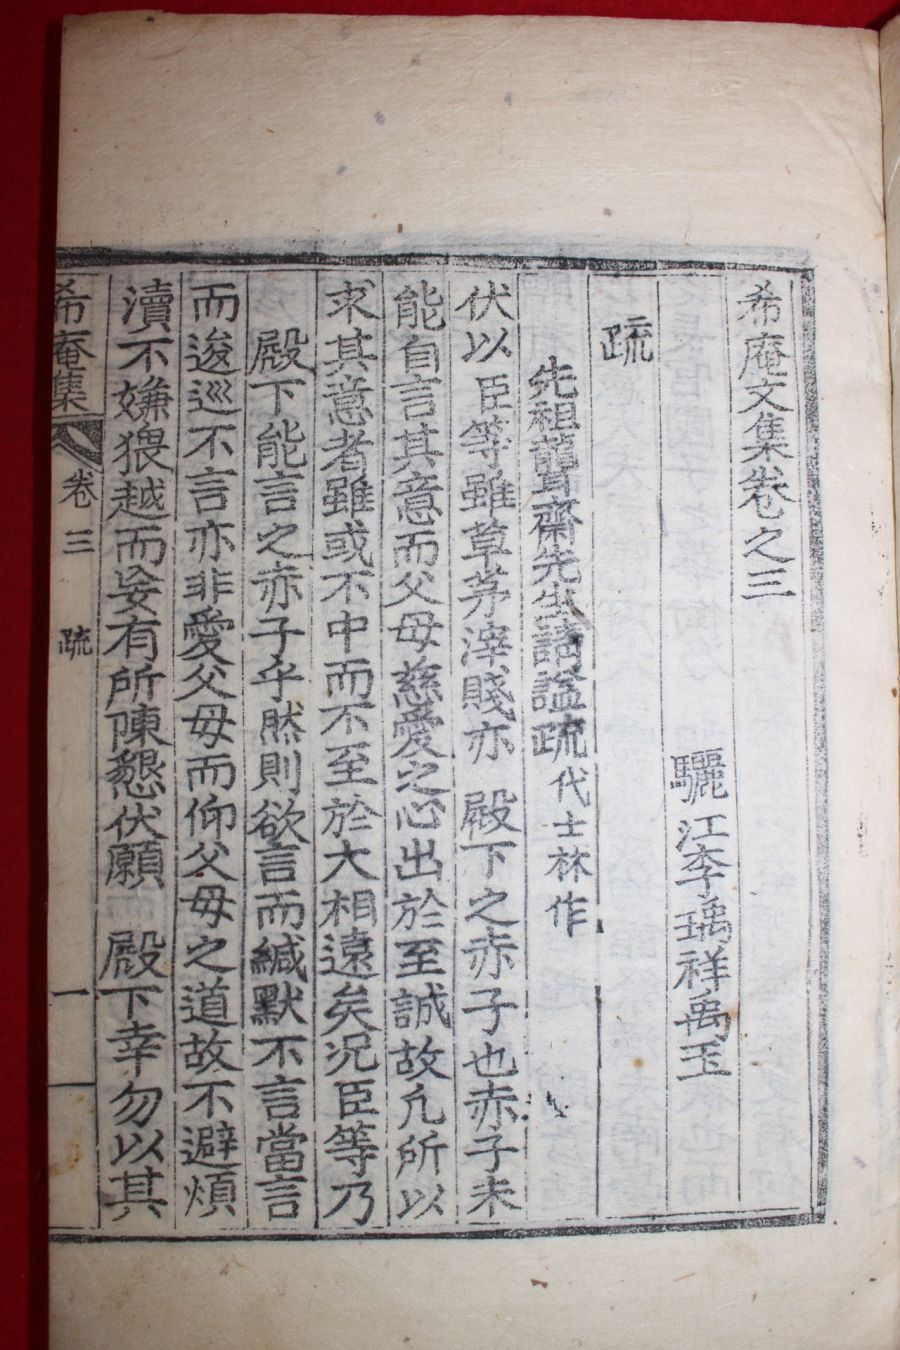 希庵文集卷之三
驪江李瑀祥禹玉
疏
先祖聾齋先生請諡疏 代士林作
伏以 臣等雖草茅滓賤亦 殿下之赤子也赤子未
能自言其意而父母慈愛之心出於至誠故凡所以
求其意者雖或不中而不至於大相遠矣況臣等乃
殿下能言之赤子乎然則欲言而緘默不言當言
而逡巡不言亦非愛父母而仰父母之道故不避煩
瀆不嫌猥越而妄有所陳懇伏願 殿下幸勿以其
希庵集 卷三 疏 一